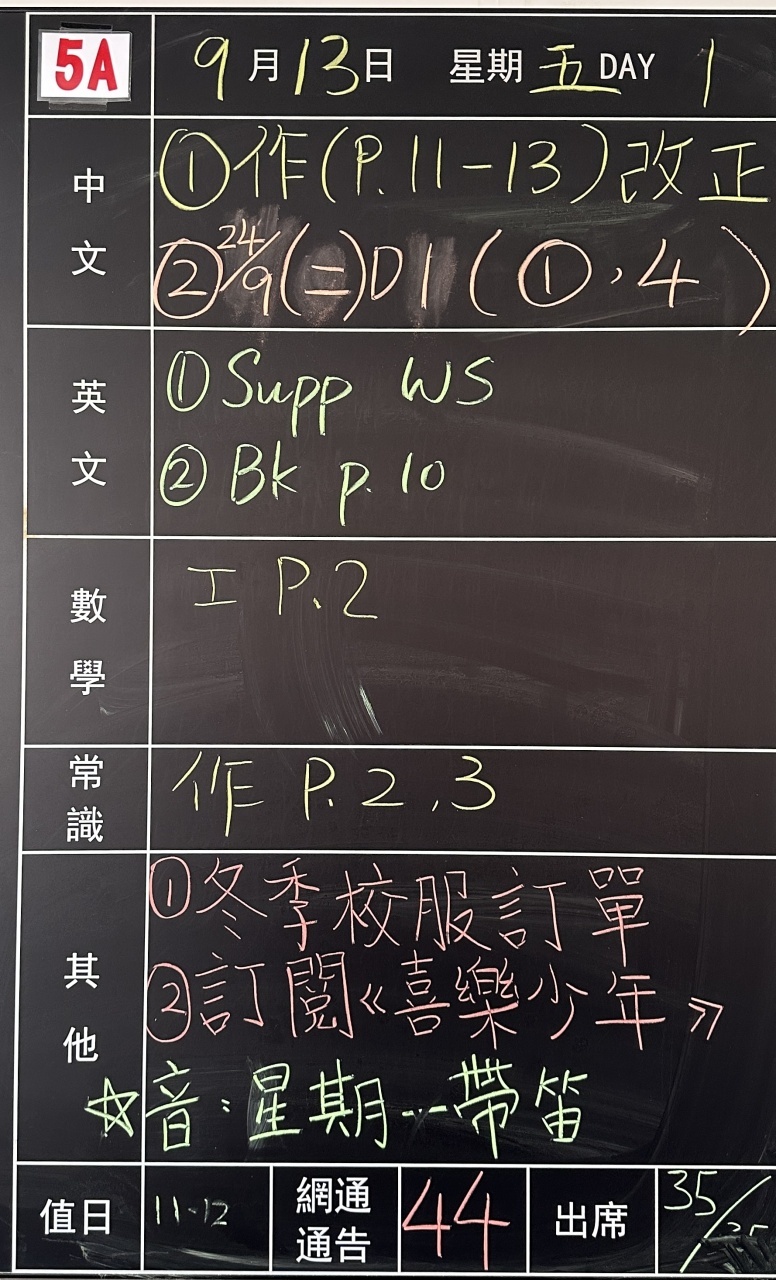 5A 9月13日 星期五 DAY 1
中文 ①作(P.11-13)改正
②24/9(二)D1(①,4)
英文 ①Supp WS
②Bk p.10
數學 工 P.2
常識 作 P.2,3
其他 ①冬季校服訂單
②訂閱《喜樂少年》
☆音:星期一帶笛
值日 11-12 網通通告 44 出席 35/